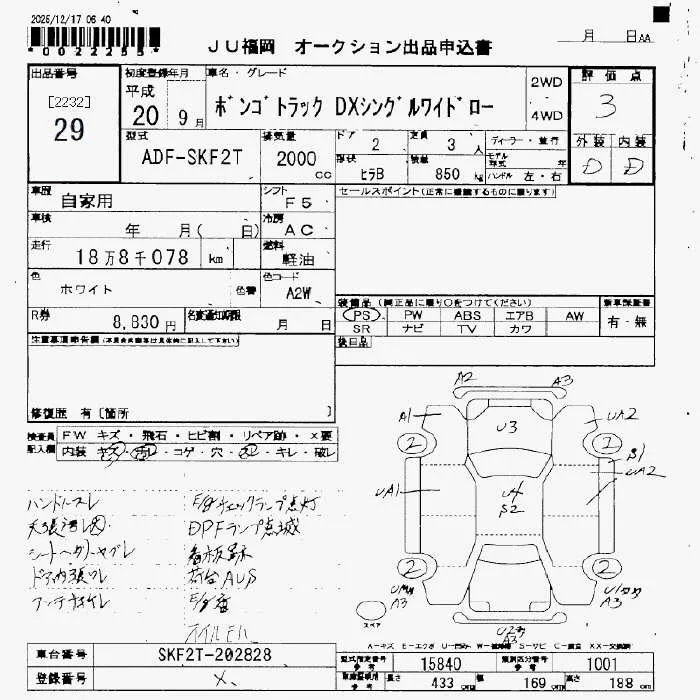 2025/12/17 06 40
*0022255*
JU福岡 オークション出品申込書
月 日 AA
出品番号
[2232]
29
初度登録年月
平成
20 9月
車名・グレード
ボンゴトラック DXシングルワイドロー
2WD
4WD
評価点
3
外装 内装
D D
型式
ADF-SKF2T
排気量
2000 cc
ドア 2
定員 3 人
形状 ヒラB
積載 850 kg
ディーラー・並行
モデル 年式 年
ハンドル 左・右
車歴 自家用
シフト F5
セールスポイント(正常に機能するものに限ります)
車検 年 月( 日)
冷房 AC
走行 18万8千078 km
燃料 軽油
色 ホワイト 色替
色コード A2W
R券 8,830円
名変通知期限 月 日
装備品(純正品に限り○をつけてください)
PS PW ABS エアB AW
SR ナビ TV カワ
新車保証書
有・無
後日品
注意事項申告欄
修復歴 有〔箇所 〕
検査員記入欄
FW キズ・飛石・ヒビ割・リペア跡・X要
内装 キズ・汚レ・コゲ・穴・スレ・キレ・破レ
ハンドルスレ
E/gチェックランプ点灯
天張汚レ
DPFランプ点滅
看板跡
ドア内張りスレ
荷台AUS
オイルモレ
A2 A3
A1 U3 UA2
2 2
B1
UA2
UA1
U4
S2
2 2
A3
A3
スペア
A3
A-キズ E-エクボ U-凹ミ W-波 S-サビ C-腐食 XX-交換済
車台番号 SKF2T-202828
登録番号
型式指定番号 参考 15840
類別区分番号 参考 1001
長さ 433 cm
幅 169 cm
高さ 188 cm